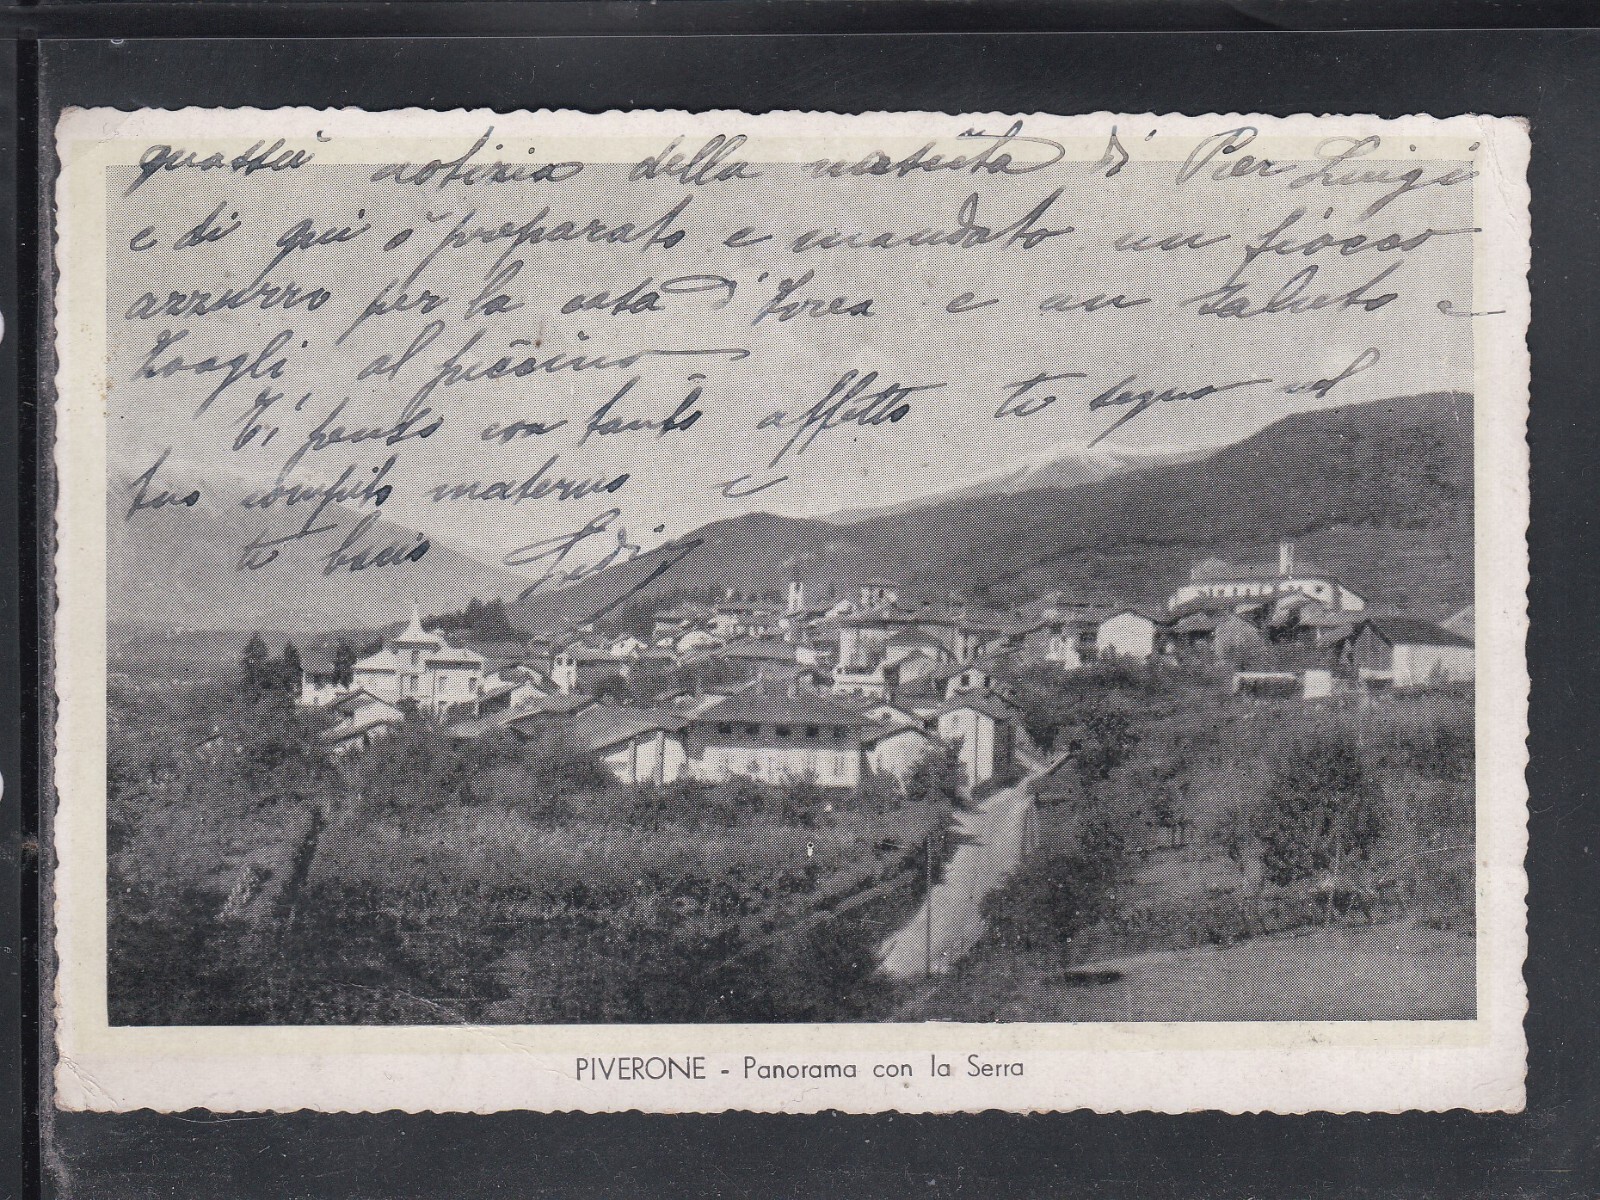 quassù notizia della nascita di Pier Luigi
e di qui ò preparato e mandato un fiocco
azzurro per la casa d'Ivrea e un saluto e
al piccino
Ti penso con tanto affetto ti seguo nel
tuo compito materno e
ti bacio
PIVERONE - Panorama con la Serra